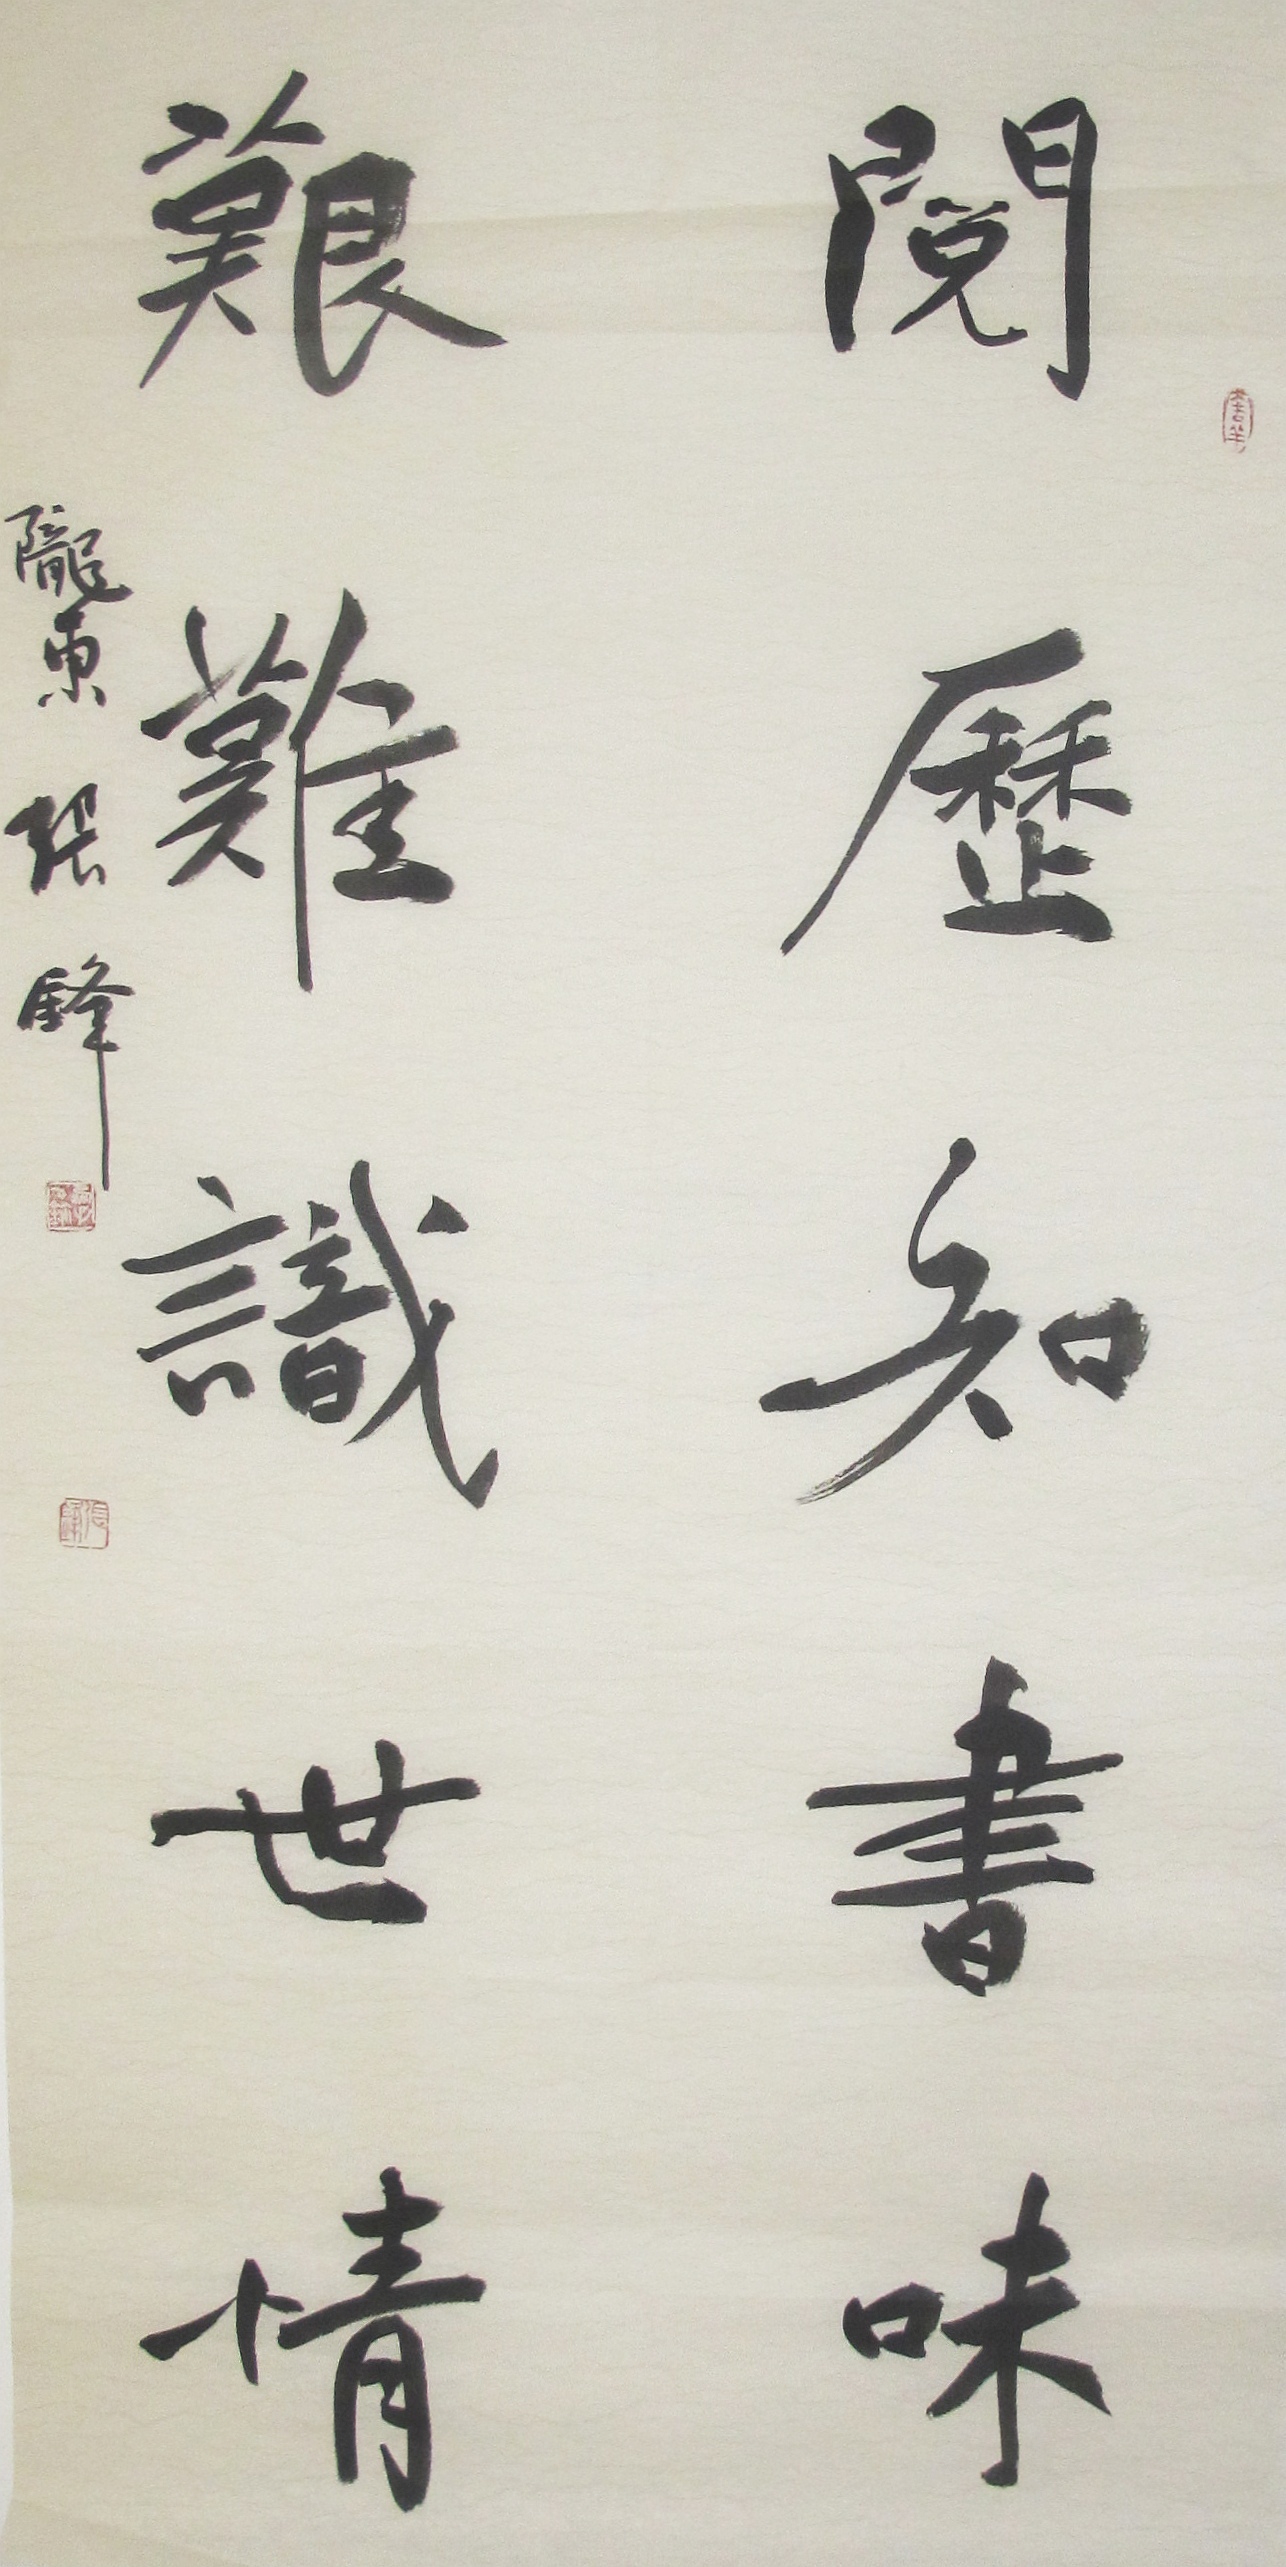 閱歷知書味
艱難識世情
隴東 張鋒